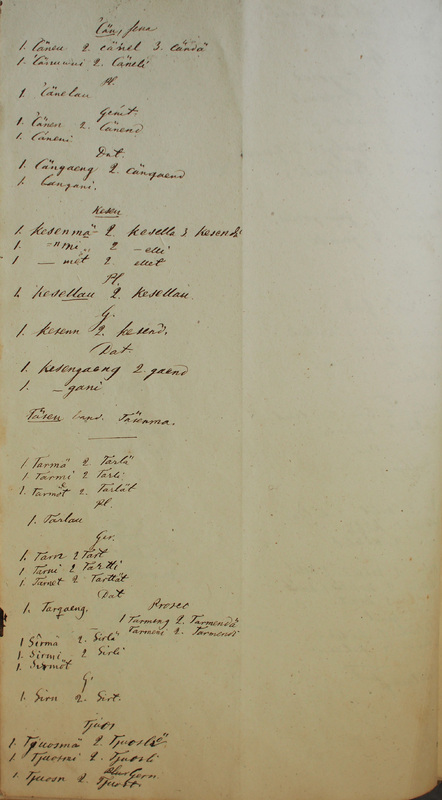 1. Cänen 2. cänel 3. cändä
2. Cäneli
Pl.
1 Cänelau
Genit.
1. Cänen 2. Cänend
1. Cäneni
Dat.
1. Cängaeng 2. cängaend
1. Cængani.
Kesen
1. Kesenmä 2. Kesella 3 Kesendä
1. -"mi 2 -elli
1 — mêt 2 ellet
Pl.
1. Kesellau 2. Kesellau
G.
1. Kesenn 2. Kesend.
Dat.
1. Kesengaeng 2. gaend
1. -gani
Täsen Täsenma.
1 Tarmä 2 Tarlä
1 Tarmi 2 Tarli
1. Tarmêt 2. Tarlät
Pl.
1. Tarlau
Gen.
1. Tarn 2 Tart
1 Tarni 2 Tartti
1 Tarnet 2 Tarttät
Dat
1. Targaeng.
Prosec
1 Tarmeng 2. Tarmendä
Tarmeni 2. Tarmendi
1 Sirmä 2 Sirlä
1 Sirmi 2 Sirli
1. Sirmêt
G.
1. Sirn 2. Sirt.
Tjuos
1. Tjuosmä 2. Tjuoslä
1. Tjuosmi 2. Tjuosli
1. Tjuosn 2. Tjuost.